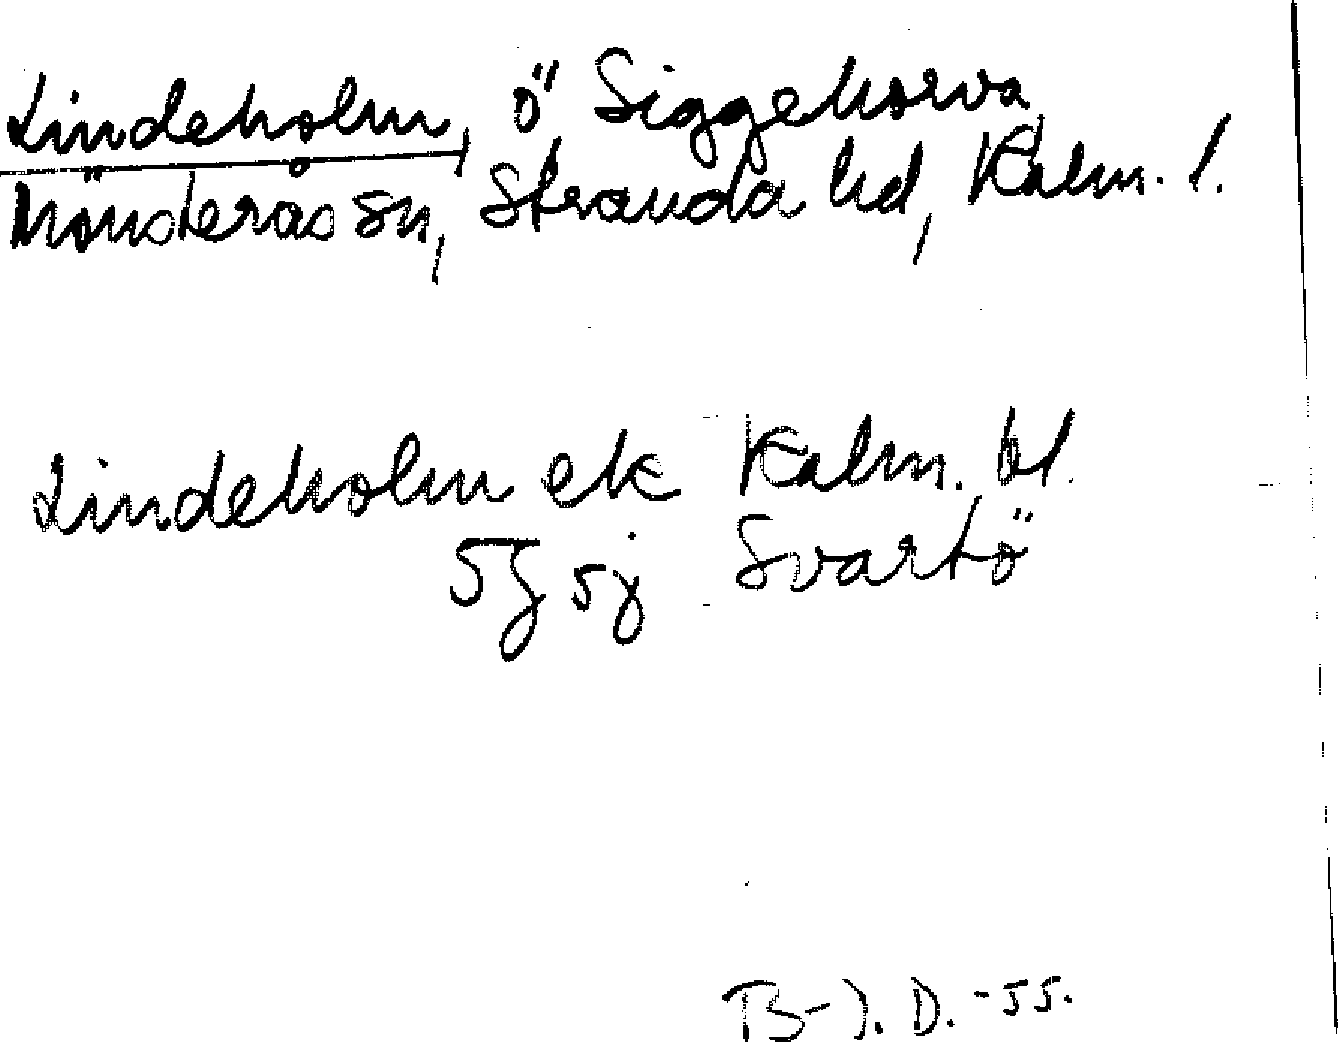 Lindeholm, ö Siggehorva
Mönsterås sn, Stranda hd, Kalm. l.
Lindeholm ek Kalm. bl.
5J 5j Svartö
B-J. D. -55.